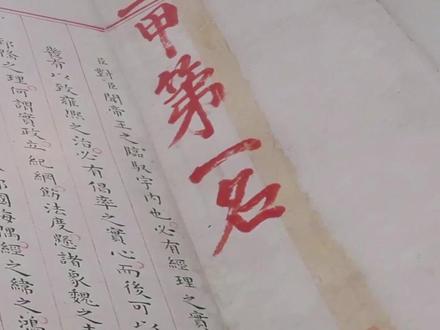 一甲第一名
臣對臣聞帝王之臨馭宇內也必有經理之實
有以致雍熙之治必有倡率之實心而後可以
郅隆之理何謂實政立紀綱飭法度懸諸象魏之
國海隅經之緯之鴻